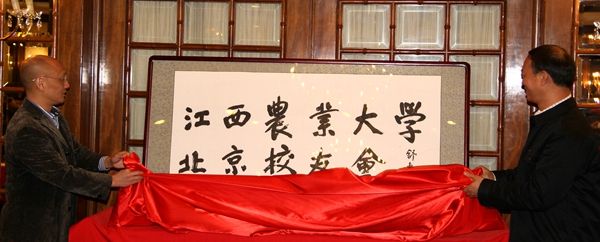 江西農業大學
北京校友會
舒